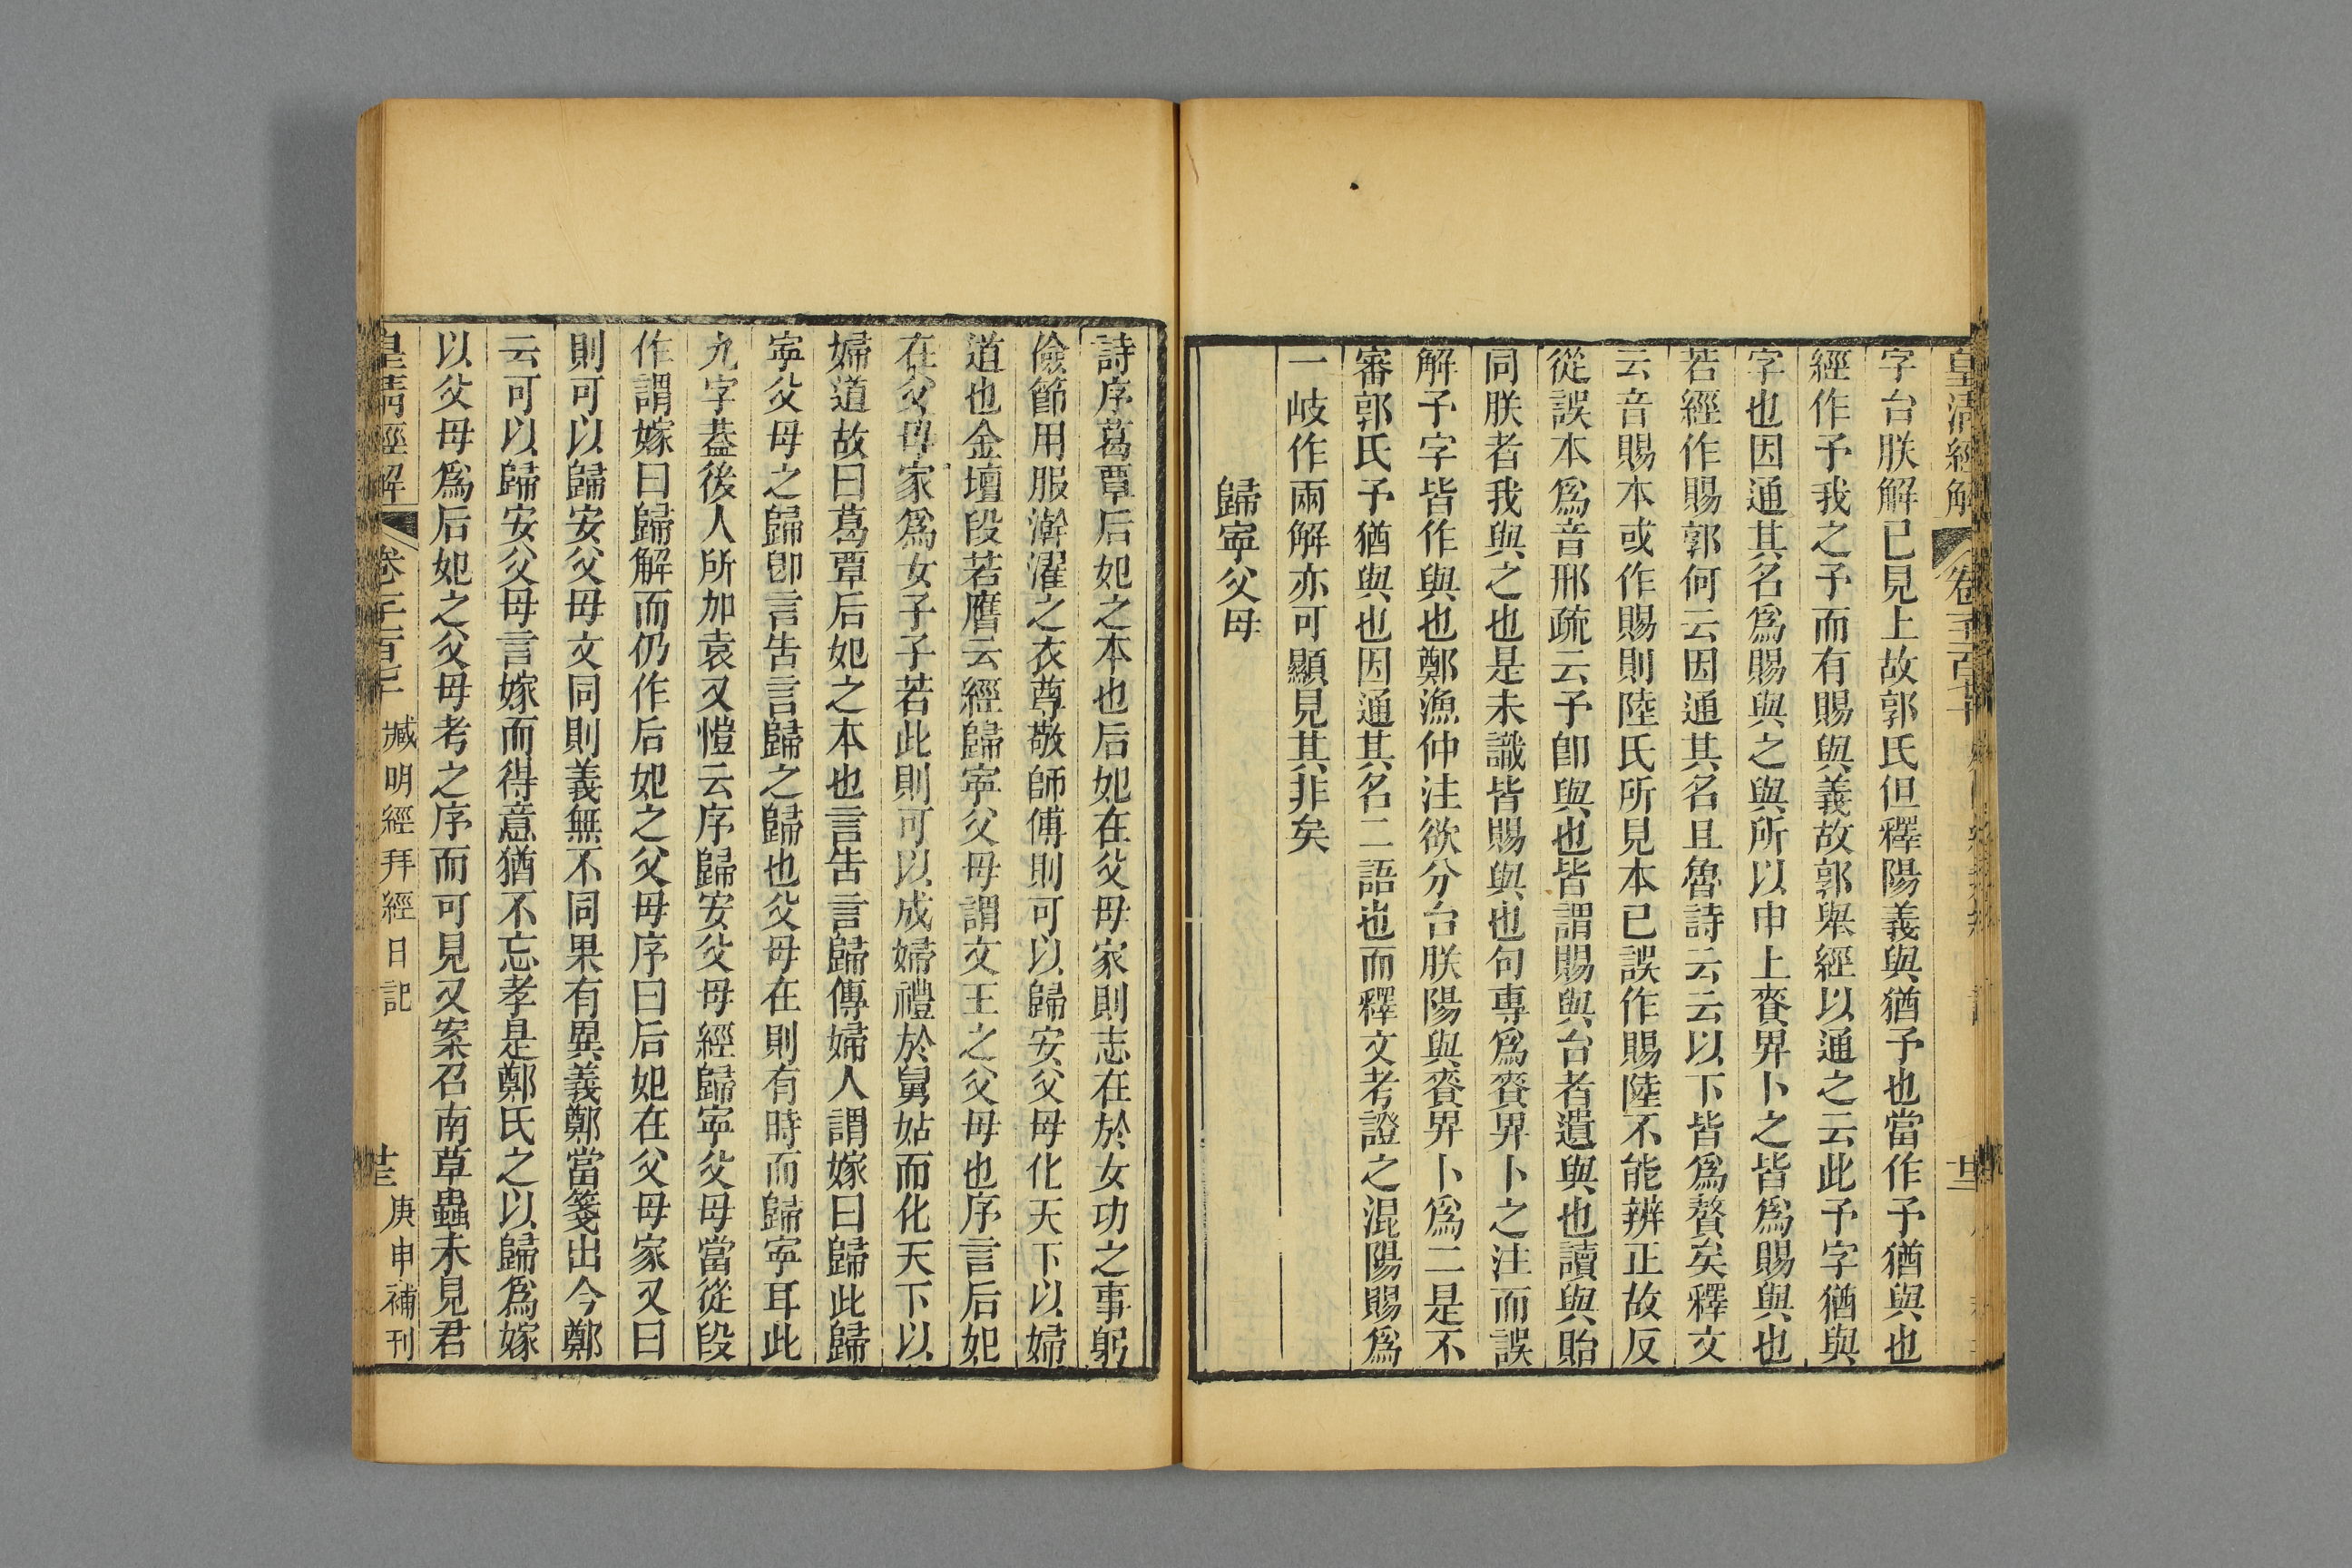 皇清經解
字台朕解已見上故郭氏但釋陽義與猶予也當作予猶與也
經作予我之予而有賜與義故郭舉經以通之云此予字猶與
字也因通其名爲賜與之與所以申上賚畀卜之皆爲賜與也
若經作賜郭何云因通其名且魯詩云云以下皆爲贅矣釋文
云音賜本或作賜則陸氏所見本已誤作賜陸不能辨正故反
從誤本爲音邢疏云予卽與也皆謂賜與台者遺與也讀與貽
同朕者我與之也是未識皆賜與也句專爲賚畀卜之注而誤
解予字皆作與也鄭漁仲注欲分台朕陽與賚畀卜爲二是不
審郭氏予猶與也因通其名二語也而釋文考證之混陽賜爲
一岐作兩解亦可顯見其非矣
歸寧父母
詩序葛覃后妃之本也后妃在父母家則志在於女功之事躬
儉節用服澣濯之衣尊敬師傅則可以歸安父母化天下以婦
道也金壇段若膺云經歸寧父母謂文王之父母也序言后妃
在父母家爲女子子若此則可以成婦禮於舅姑而化天下以
婦道故曰葛覃后妃之本也言告言歸傳婦人謂嫁曰歸此歸
寧父母之歸卽言告言歸之歸也父母在則有時而歸寧耳此
九字葢後人所加袁又愷云序歸安父母經歸寧父母當從段
作謂嫁曰歸解而仍作后妃之父母序曰后妃在父母家又曰
則可以歸安父母文同則義無不同果有異義鄭當箋出今鄭
云可以歸安父母言嫁而得意猶不忘孝是鄭氏之以歸爲嫁
以父母爲后妃之父母考之序而可見又案召南草蟲未見君
皇清經解
臧明經拜經日記
庚申補刊